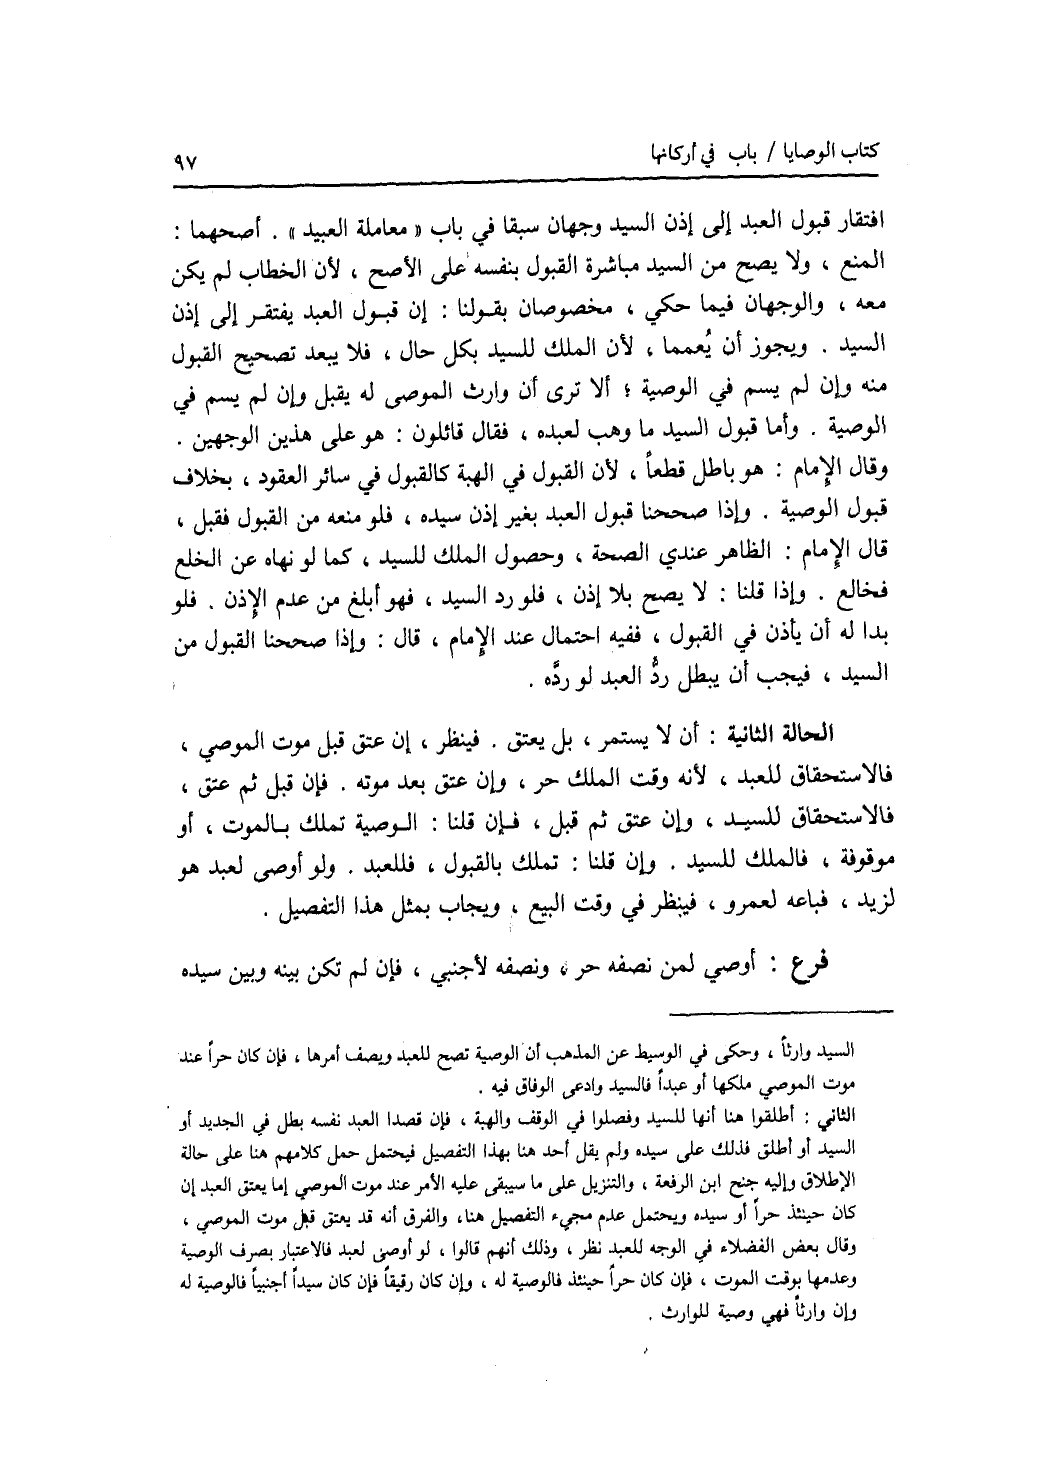 كتاب الوصايا / باب في أركانها
٩٧
افتقار قبول العبد إلى إذن السيد وجهان سبقا في باب « معاملة العبيد » . أصحهما :
المنع ، ولا يصح من السيد مباشرة القبول بنفسه على الأصح ، لأن الخطاب لم يكن
معه ، والوجهان فيما حكي ، مخصوصان بقولنا : إن قبول العبد يفتقر إلى إذن
السيد . ويجوز أن يُعمما ، لأن الملك للسيد بكل حال ، فلا يبعد تصحيح القبول
منه وإن لم يسم في الوصية ؛ ألا ترى أن وارث الموصى له يقبل وإن لم يسم في
الوصية . وأما قبول السيد ما وهب لعبده ، فقال قائلون : هو على هذين الوجهين .
وقال الإمام : هو باطل قطعاً ، لأن القبول في الهبة كالقبول في سائر العقود ، بخلاف
قبول الوصية . وإذا صححنا قبول العبد بغير إذن سيده ، فلو منعه من القبول فقبل ،
قال الإمام : الظاهر عندي الصحة ، وحصول الملك للسيد ، كما لو نهاه عن الخلع
فخالع . وإذا قلنا : لا يصح بلا إذن ، فلو رد السيد ، فهو أبلغ من عدم الإذن . فلو
بدا له أن يأذن في القبول ، ففيه احتمال عند الإمام ، قال : وإذا صححنا القبول من
السيد ، فيجب أن يبطل ردُّ العبد لو ردَّه .
الحالة الثانية : أن لا يستمر ، بل يعتق . فينظر ، إن عتق قبل موت الموصي ،
فالاستحقاق للعبد ، لأنه وقت الملك حر ، وإن عتق بعد موته . فإن قبل ثم عتق ،
فالاستحقاق للسيد ، وإن عتق ثم قبل ، فإن قلنا : الوصية تملك بالموت ، أو
موقوفة ، فالملك للسيد . وإن قلنا : تملك بالقبول ، فللعبد . ولو أوصى لعبد هو
لزيد ، فباعه لعمرو ، فينظر في وقت البيع ، ويجاب بمثل هذا التفصيل .
فرع : أوصي لمن نصفه حر ، ونصفه لأجنبي ، فإن لم تكن بينه وبين سيده
السيد وارثاً ، وحكى في الوسيط عن المذهب أن الوصية تصح للعبد ويصف أمرها ، فإن كان حراً عند
موت الموصي ملكها أو عبداً فالسيد وادعى الوفاق فيه .
الثاني : أطلقوا هنا أنها للسيد وفصلوا في الوقف والهبة ، فإن قصدا العبد نفسه بطل في الجديد أو
السيد أو أطلق فذلك على سيده ولم يقل أحد هنا بهذا التفصيل فيحتمل حمل كلامهم هنا على حالة
الإطلاق وإليه جنح ابن الرفعة ، والتنزيل على ما سيبقى عليه الأمر عند موت الموصي إما يعتق العبد إن
كان حينئذ حراً أو سيده ويحتمل عدم مجيء التفصيل هنا، والفرق أنه قد يعتق قبل موت الموصي ،
وقال بعض الفضلاء في الوجه للعبد نظر ، وذلك أنهم قالوا ، لو أوصى لعبد فالاعتبار بصرف الوصية
وعدمها بوقت الموت ، فإن كان حراً حينئذ فالوصية له ، وإن كان رقيقاً فإن كان سيداً أجنبياً فالوصية له
وإن وارثاً فهي وصية للوارث .